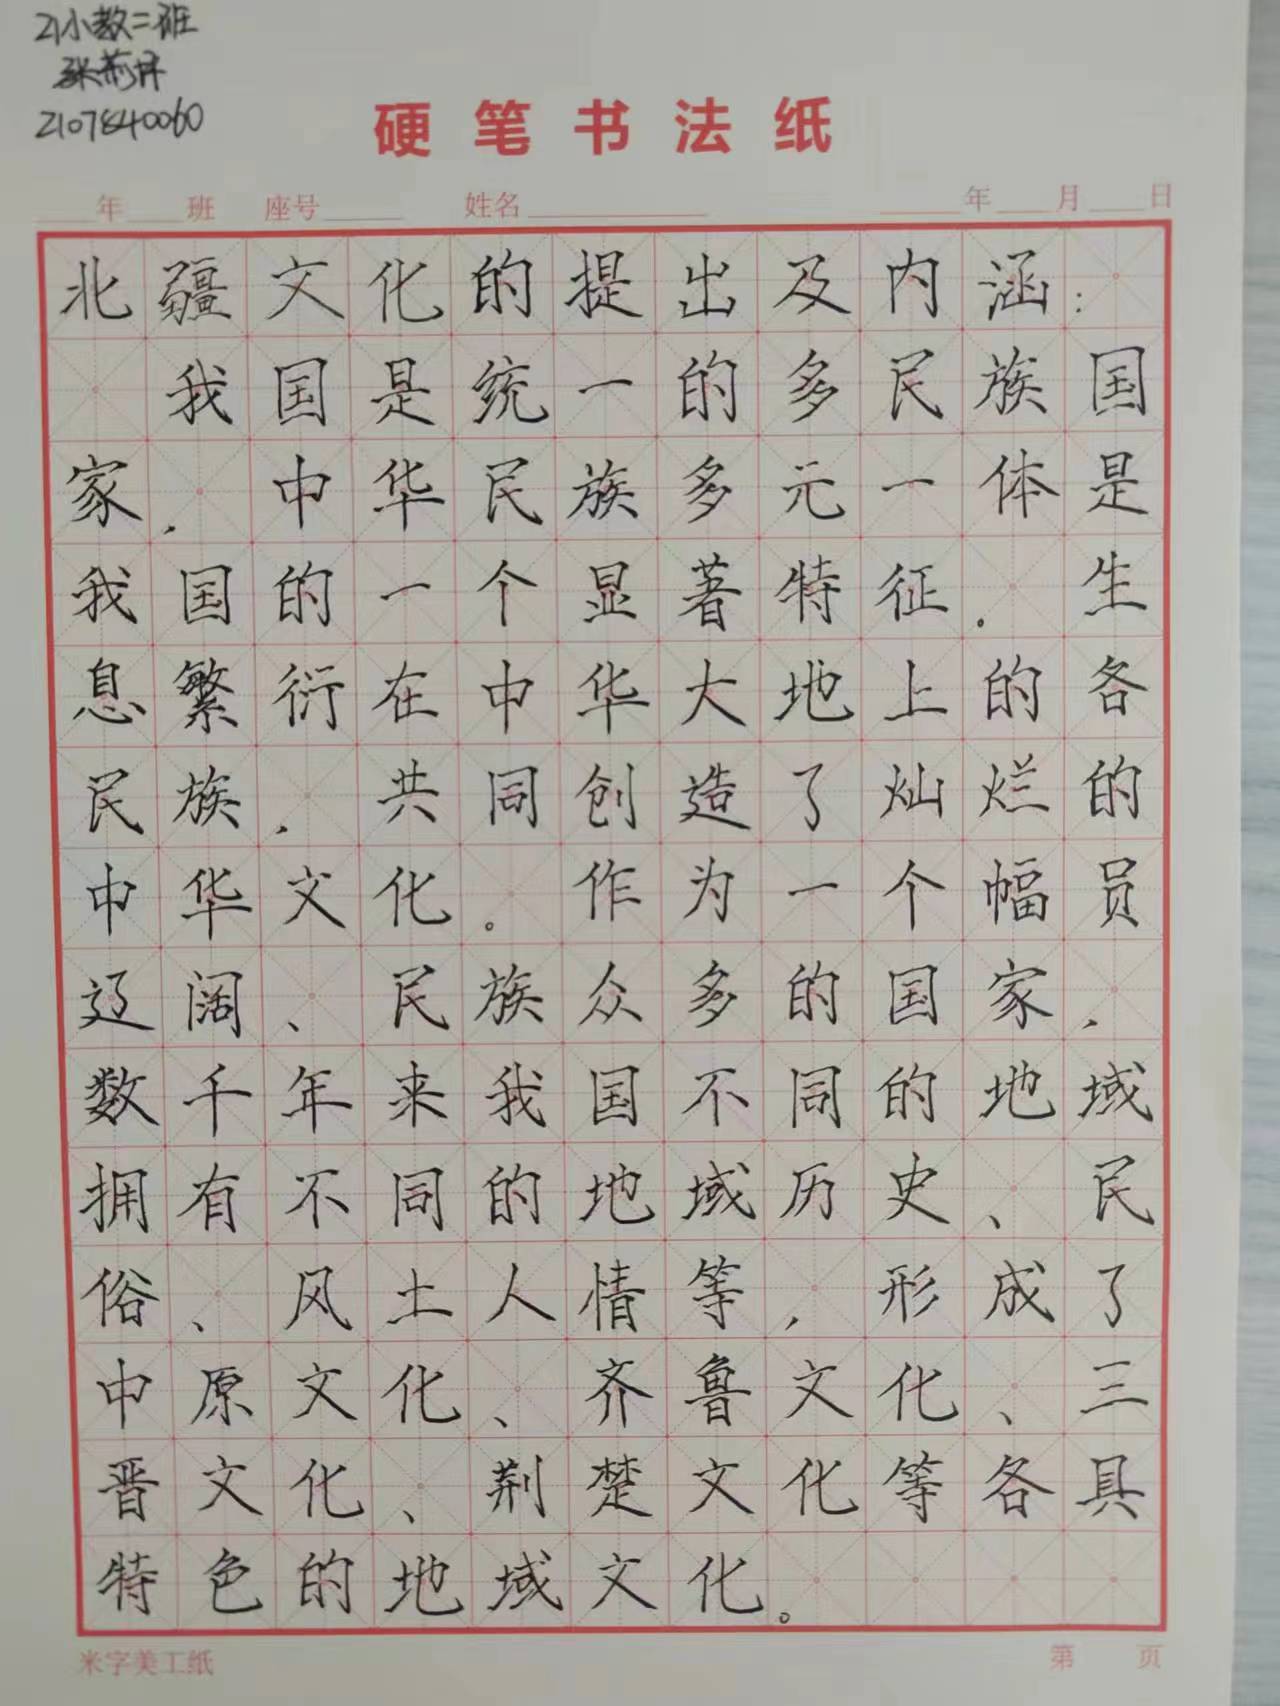 21小教二班
2107840060
硬笔书法纸
年 班 座号 姓名 年 月 日
北疆文化的提出及内涵：
我国是统一的多民族国
家，中华民族多元一体是
我国的一个显著特征。生
息繁衍在中华大地上的各
民族，共同创造了灿烂的
中华文化。作为一个幅员
辽阔、民族众多的国家，
数千年来我国不同的地域
拥有不同的地域历史、民
俗、风土人情等，形成了
中原文化、齐鲁文化、三
晋文化、荆楚文化等各具
特色的地域文化。
米字美工纸 第 页